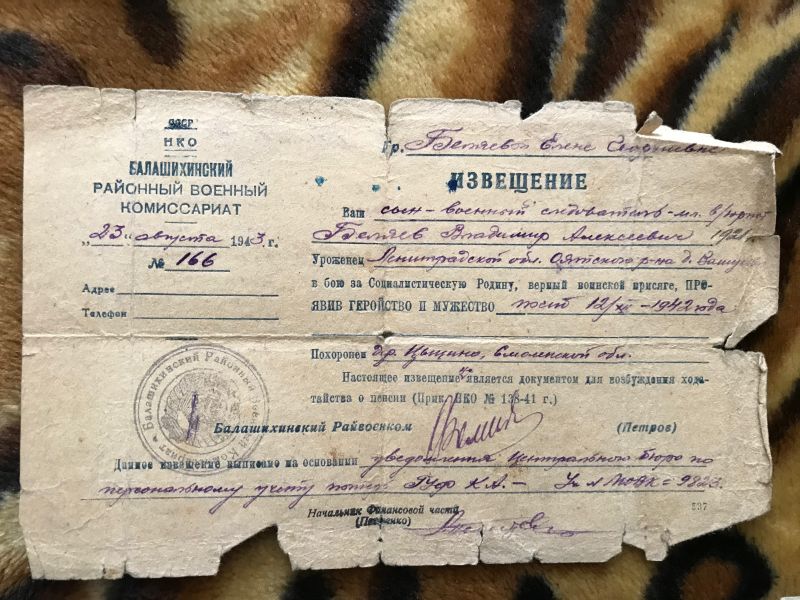 СССР
НКО
БАЛАШИХИНСКИЙ
РАЙОННЫЙ ВОЕННЫЙ
КОМИССАРИАТ
„23" августа 1943 г.
№ 166
Адрес
Телефон
Гр. Беляевой Елене
ИЗВЕЩЕНИЕ
Ваш сын - военный следователь - мл. в/юрист
Беляев Владимир Алексеевич 1921
Уроженец Ленинградской обл. Оятского р-на д.
в бою за Социалистическую Родину, верный воинской присяге, ПРО-
ЯВИВ ГЕРОЙСТВО И МУЖЕСТВО 12/XII - 1942 года
Похоронен дер. Смоленской обл.
Настоящее извещение является документом для возбуждения хода-
тайства о пенсии (Прик. НКО № 138-41 г.)
Балашихинский Райвоенком (Петров)
Балашихинский Районный Военный Комиссариат
Данное извещение выписано на основании уведомления Центрального бюро по
персональному учету потерь К.А. -
Начальник Финансовой части
537